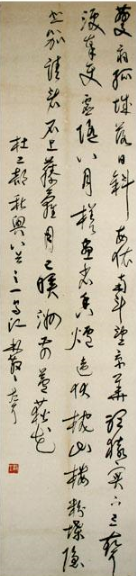 夔府孤城落日斜每依南斗望京華聽猿實下三聲
淚奉使虛隨八月槎畫省香爐違伏枕山樓粉堞隱
悲笳請看石上藤蘿月已映洲前蘆荻花
杜工部秋興八首之一